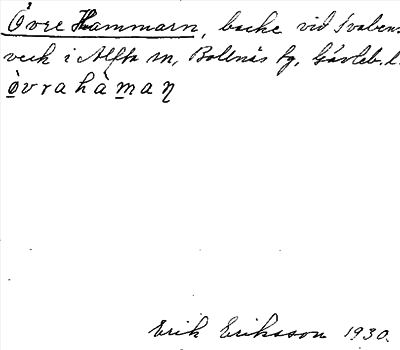 Övre Hammarn, backe vid Svabens-
verk i Alfta sn, Bollnäs fg, Gävleb. l.
òvrahàmaŋ
Erik Eriksson 1930.